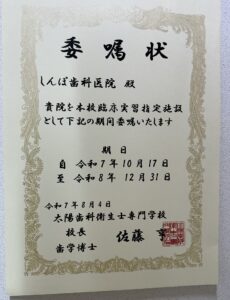 委嘱状
しんぽ歯科医院 殿
貴院を本校臨床実習指定施設
として下記の期間委嘱いたします
期日
自 令和7年10月17日
至 令和8年12月31日
令和7年8月4日
太陽歯科衛生士専門学校
校長
歯学博士 佐藤 亨